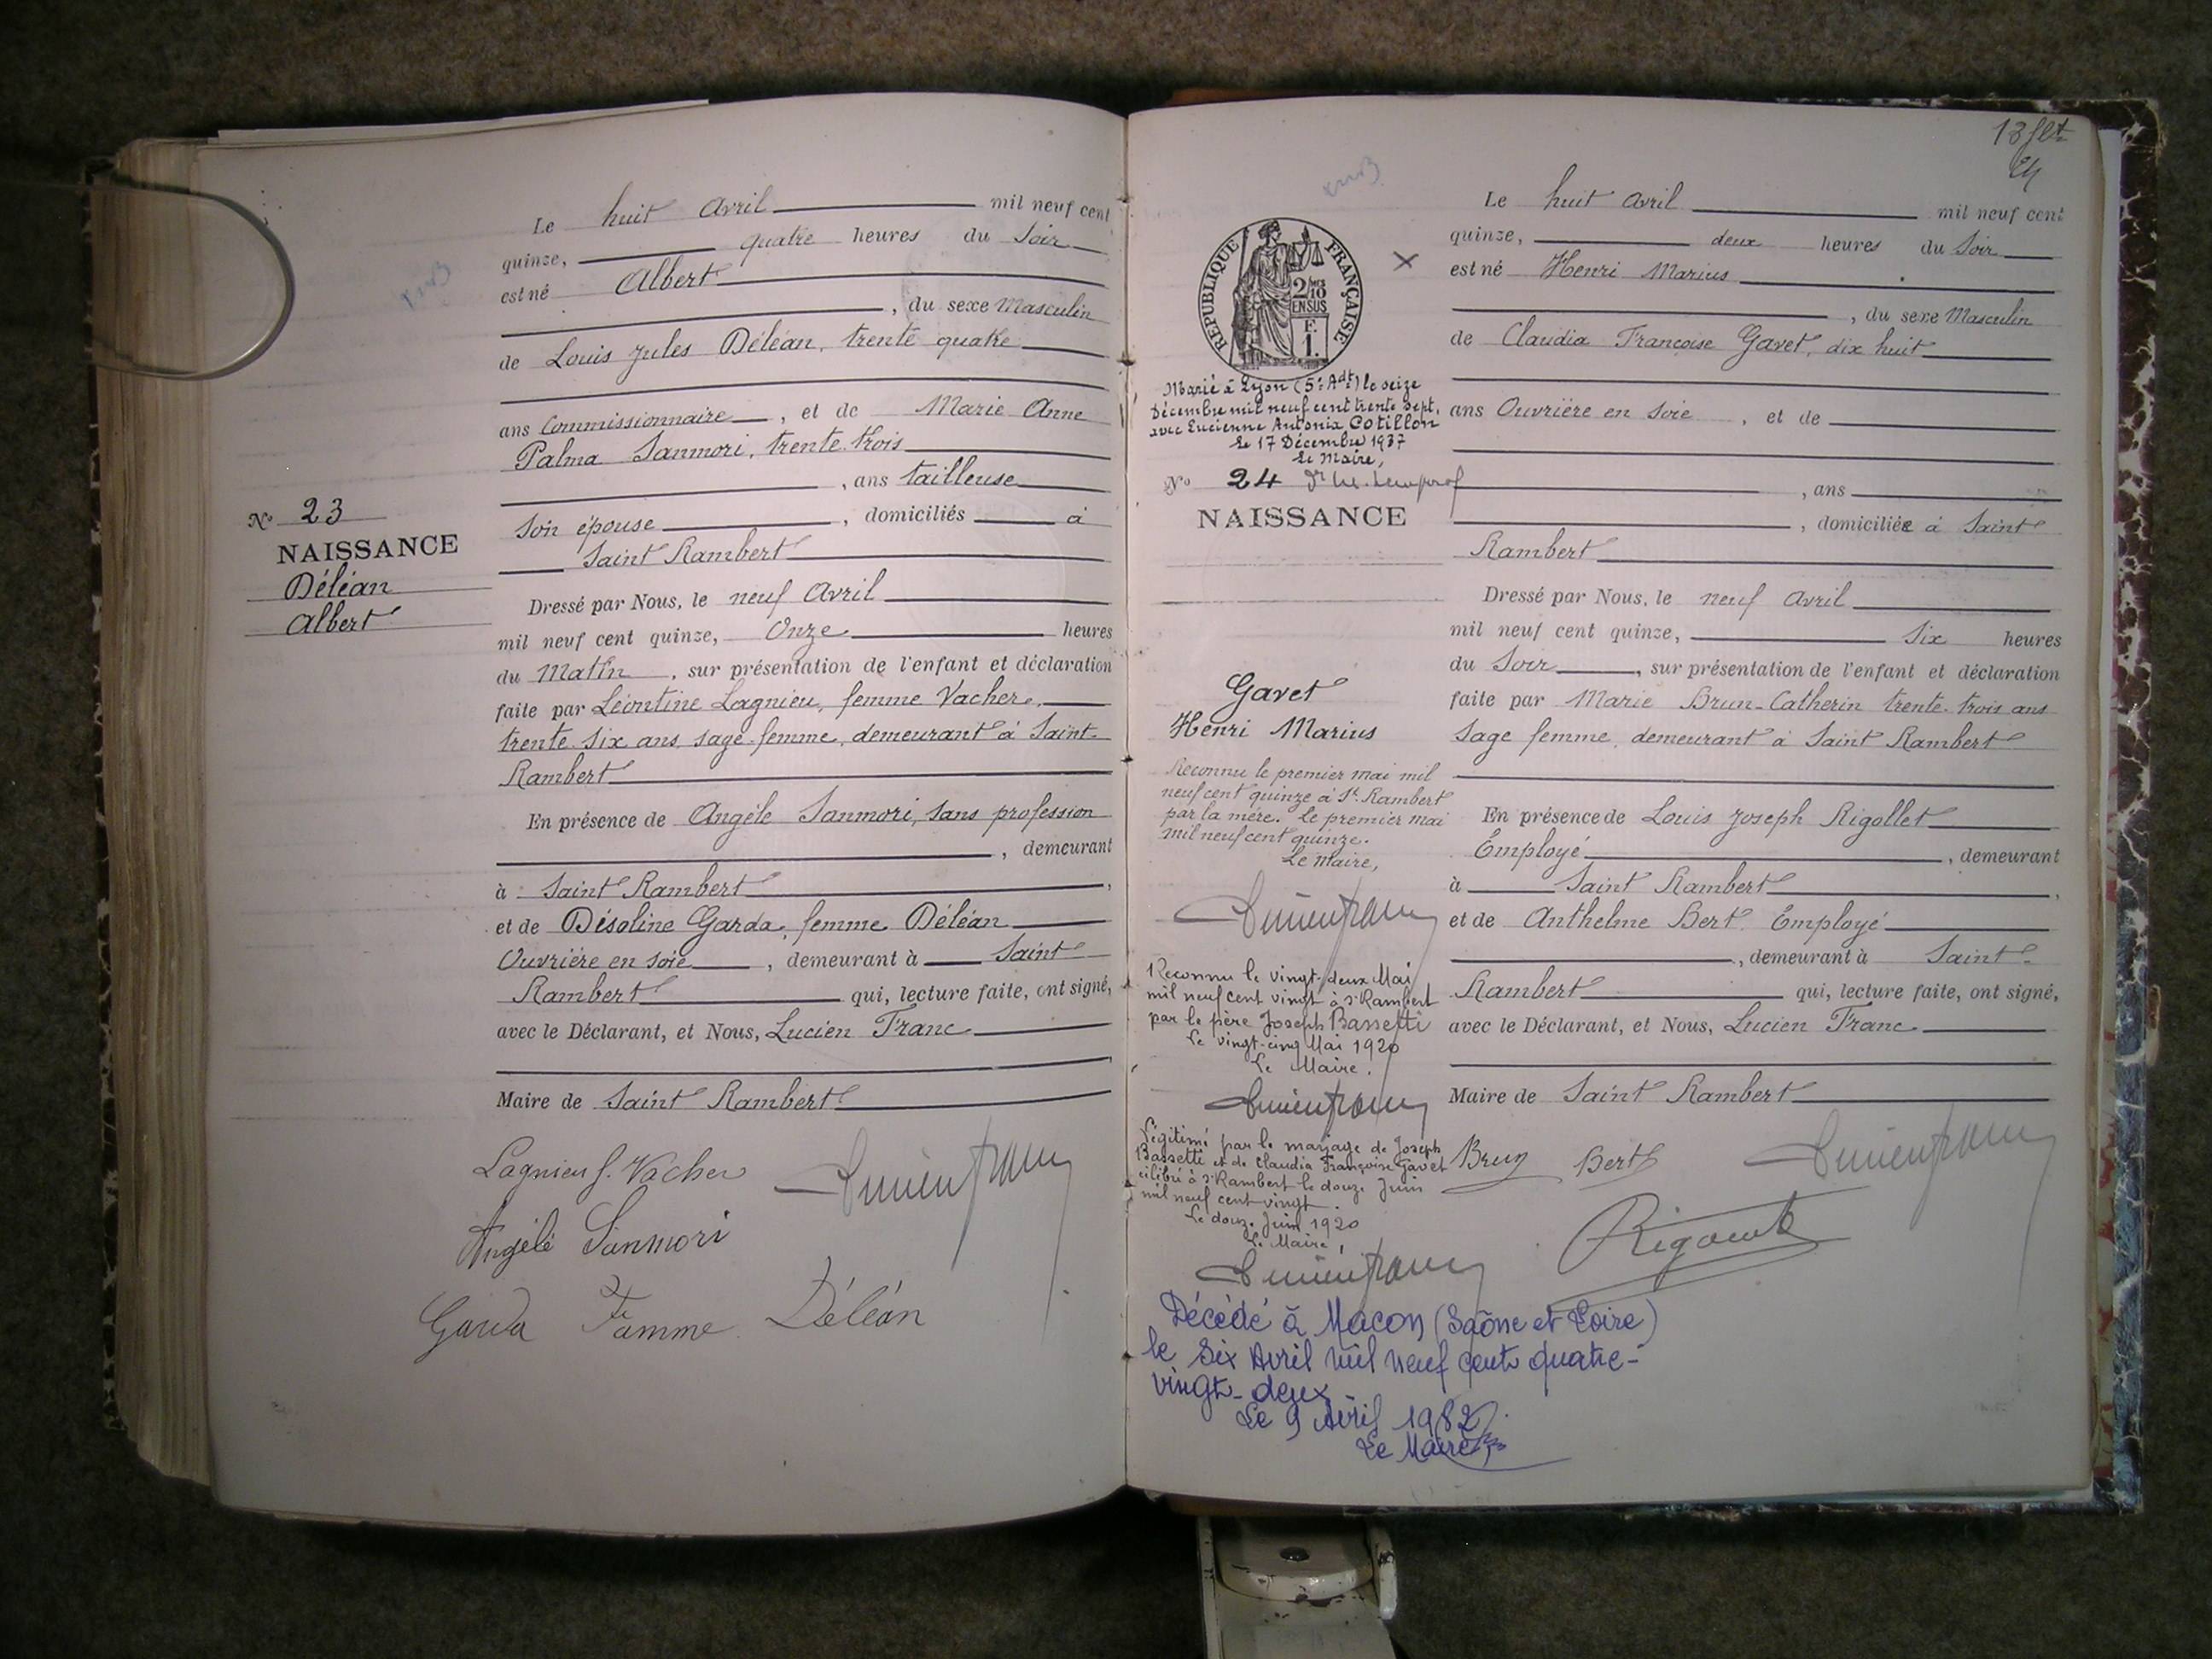 Le huit Avril mil neuf cent
quinze, quatre heures du Soir
est né Albert
, du sexe Masculin
de Louis Jules Déléan, trente quatre
ans Commissionnaire, et de Marie Anne
Palma Sanmori, trente-trois
, ans tailleuse
Son épouse, domiciliés à
Saint Rambert
Nº 23
NAISSANCE
Déléan
Albert
Dressé par Nous, le neuf Avril
mil neuf cent quinze, Onze heures
du Matin, sur présentation de l'enfant et déclaration
faite par Léontine Lagnieu, femme Vacher,
trente-six ans, sage-femme, demeurant à Saint-
Rambert
En présence de Angèle Sanmori, sans profession
, demeurant
à Saint Rambert,
et de Désoline Garda, femme Déléan
Ouvrière en soie, demeurant à Saint
Rambert qui, lecture faite, ont signé,
avec le Déclarant, et Nous, Lucien Franc
Maire de Saint Rambert
Lagnieu f. Vacher
Angèle Sanmori
Garda Famme Déléan
13 flt
24
Le huit Avril mil neuf cent
quinze, deux heures du Soir
est né Henri Marius
, du sexe Masculin
de Claudia Françoise Gavet, dix huit
ans Ouvrière en Soie, et de
, ans
, domiciliée à Saint
Rambert
REPUBLIQUE FRANÇAISE
2/10
EN SUS
F.
1.
Marié à Lyon (5e Adt) le seize
Décembre mil neuf cent trente sept,
avec Lucienne Antonia Cotillon
Le 17 Décembre 1937
Le Maire,
Nº 24
NAISSANCE
Gavet
Henri Marius
Dressé par Nous, le neuf Avril
mil neuf cent quinze, Six heures
du Soir, sur présentation de l'enfant et déclaration
faite par Marie Brun-Catherin trente-trois ans
Sage femme, demeurant à Saint Rambert
En présence de Louis Joseph Rigollet
Employé, demeurant
à Saint Rambert,
et de Anthelme Bert Employé
, demeurant à Saint-
Rambert qui, lecture faite, ont signé,
avec le Déclarant, et Nous, Lucien Franc
Maire de Saint Rambert
Brun Bert
Reconnu le premier mai mil
neuf cent quinze à St Rambert
par la mère. Le premier mai
mil neuf cent quinze.
Le Maire,
Reconnu le vingt-deux Mai
mil neuf cent vingt à St Rambert
par le père Joseph Bassetti
Le vingt-cinq Mai 1920
Le Maire.
Légitimé par le mariage de Joseph
Bassetti et de Claudia Françoise Gavet
célébré à St Rambert le douze Juin
mil neuf cent vingt.
Le douze Juin 1920
Le Maire,
Décédé à Macon (Saône et Loire)
le Six Avril mil neuf cent quatre-
vingt-deux
Le 9 Avril 1982
Le Maire